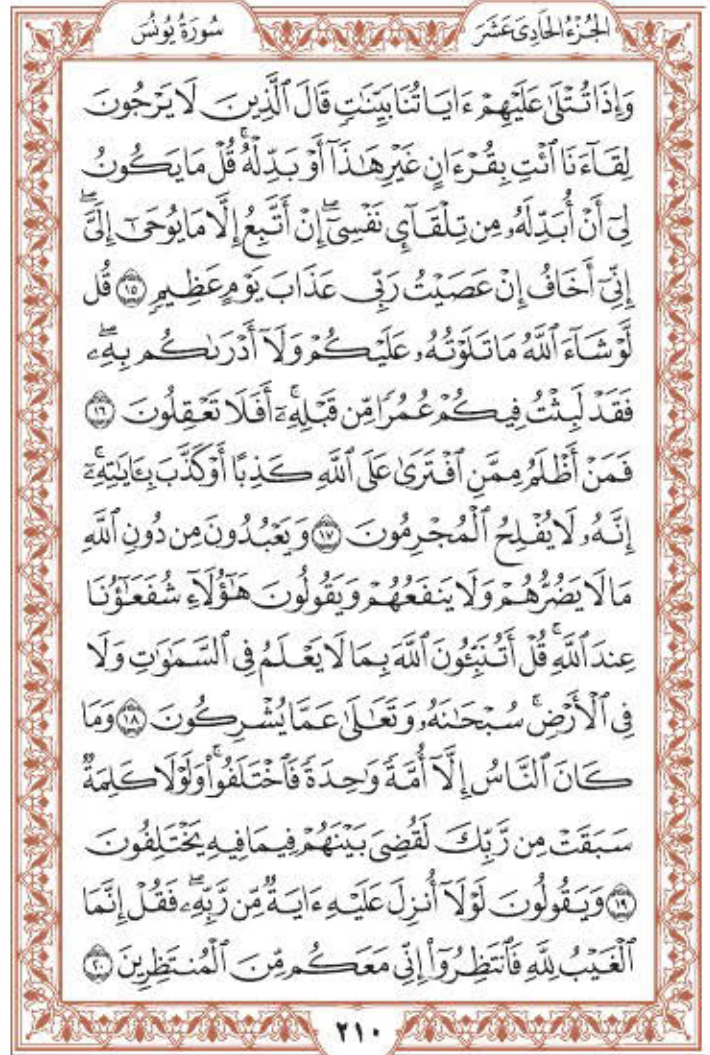 الجُزْءُ الحَادِي عَشَرَ
سُورَةُ يُونُسَ
وَإِذَا تُتْلَىٰ عَلَيْهِمْ ءَايَاتُنَا بَيِّنَٰتٍ قَالَ ٱلَّذِينَ لَا يَرْجُونَ
لِقَآءَنَا ٱئْتِ بِقُرْءَانٍ غَيْرِ هَٰذَآ أَوْ بَدِّلْهُ ۚ قُلْ مَا يَكُونُ
لِىٓ أَنْ أُبَدِّلَهُۥ مِن تِلْقَآئِ نَفْسِىٓ ۖ إِنْ أَتَّبِعُ إِلَّا مَا يُوحَىٰٓ إِلَىَّ ۖ
إِنِّىٓ أَخَافُ إِنْ عَصَيْتُ رَبِّى عَذَابَ يَوْمٍ عَظِيمٍ ١٥ قُل
لَّوْ شَآءَ ٱللَّهُ مَا تَلَوْتُهُۥ عَلَيْكُمْ وَلَآ أَدْرَىٰكُم بِهِۦ ۖ
فَقَدْ لَبِثْتُ فِيكُمْ عُمُرًا مِّن قَبْلِهِۦٓ ۚ أَفَلَا تَعْقِلُونَ ١٦
فَمَنْ أَظْلَمُ مِمَّنِ ٱفْتَرَىٰ عَلَى ٱللَّهِ كَذِبًا أَوْ كَذَّبَ بِـَٔايَٰتِهِۦٓ ۚ
إِنَّهُۥ لَا يُفْلِحُ ٱلْمُجْرِمُونَ ١٧ وَيَعْبُدُونَ مِن دُونِ ٱللَّهِ
مَا لَا يَضُرُّهُمْ وَلَا يَنفَعُهُمْ وَيَقُولُونَ هَٰٓؤُلَآءِ شُفَعَٰٓؤُنَا
عِندَ ٱللَّهِ ۚ قُلْ أَتُنَبِّـُٔونَ ٱللَّهَ بِمَا لَا يَعْلَمُ فِى ٱلسَّمَٰوَٰتِ وَلَا
فِى ٱلْأَرْضِ ۚ سُبْحَٰنَهُۥ وَتَعَٰلَىٰ عَمَّا يُشْرِكُونَ ١٨ وَمَا
كَانَ ٱلنَّاسُ إِلَّآ أُمَّةً وَٰحِدَةً فَٱخْتَلَفُوا۟ ۚ وَلَوْلَا كَلِمَةٌ
سَبَقَتْ مِن رَّبِّكَ لَقُضِىَ بَيْنَهُمْ فِيمَا فِيهِ يَخْتَلِفُونَ
١٩ وَيَقُولُونَ لَوْلَآ أُنزِلَ عَلَيْهِ ءَايَةٌ مِّن رَّبِّهِۦ ۖ فَقُلْ إِنَّمَا
ٱلْغَيْبُ لِلَّهِ فَٱنتَظِرُوٓا۟ إِنِّى مَعَكُم مِّنَ ٱلْمُنتَظِرِينَ ٢٠
٢١٠